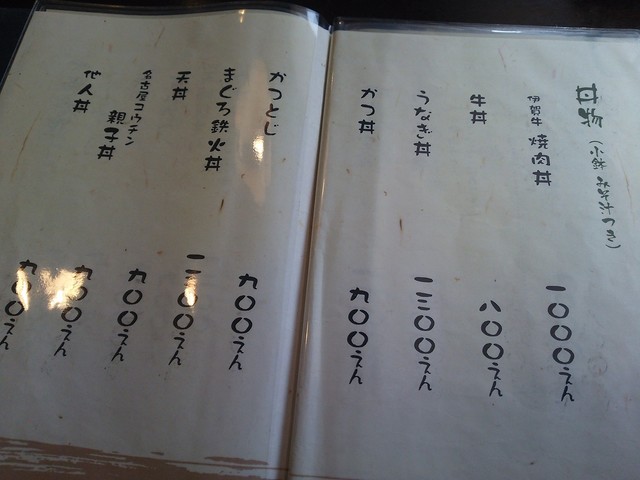 丼物(小鉢 みそ汁つき)
伊賀牛 焼肉丼 一〇〇〇えん
牛丼 八〇〇えん
うなぎ丼 一三〇〇えん
かつ丼 九〇〇えん
かつとじ 九〇〇えん
まぐろ鉄火丼
天丼 九〇〇えん
名古屋コウチン 親子丼 九〇〇えん
他人丼 九〇〇えん